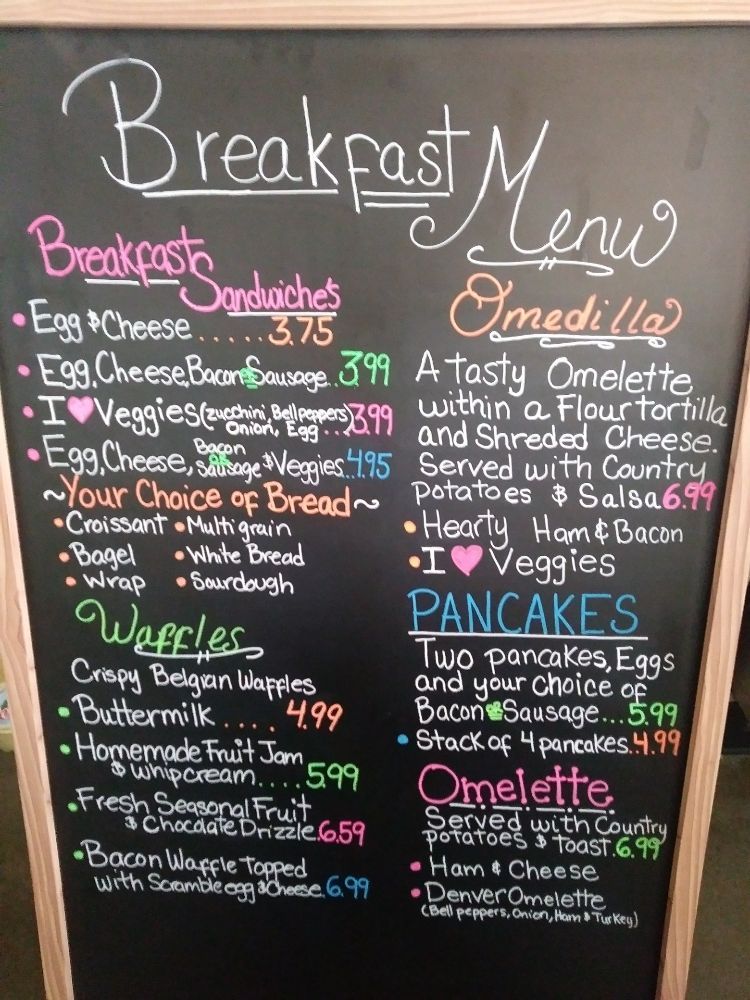 Breakfast Menu
Breakfast
Sandwiche's
• Egg & Cheese.....3.75
• Egg, Cheese, Bacon or Sausage..3.99
• I ♥ Veggies (zucchini, Bell peppers
Onion, Egg...) 3.99
• Egg, Cheese, Bacon or Sausage & Veggies..4.95
~Your Choice of Bread~
• Croissant • Multi grain
• Bagel • White Bread
• Wrap • Sourdough
Waffles
Crispy Belgian Waffles
• Buttermilk....4.99
• Homemade Fruit Jam
& whip cream....5.99
• Fresh Seasonal Fruit
& Chocolate Drizzle.6.59
• Bacon Waffle Topped
with Scramble egg & Cheese.6.99
Omedilla
A tasty Omelette
within a Flour tortilla
and Shreded Cheese.
Served with Country
potatoes & Salsa 6.99
• Hearty Ham & Bacon
• I ♥ Veggies
PANCAKES
Two pancakes, Eggs
and your choice of
Bacon or Sausage...5.99
• Stack of 4 pancakes..4.99
Omelette
Served with Country
potatoes & toast.6.99
• Ham & Cheese
• Denver Omelette
(Bell peppers, Onion, Ham & Turkey)